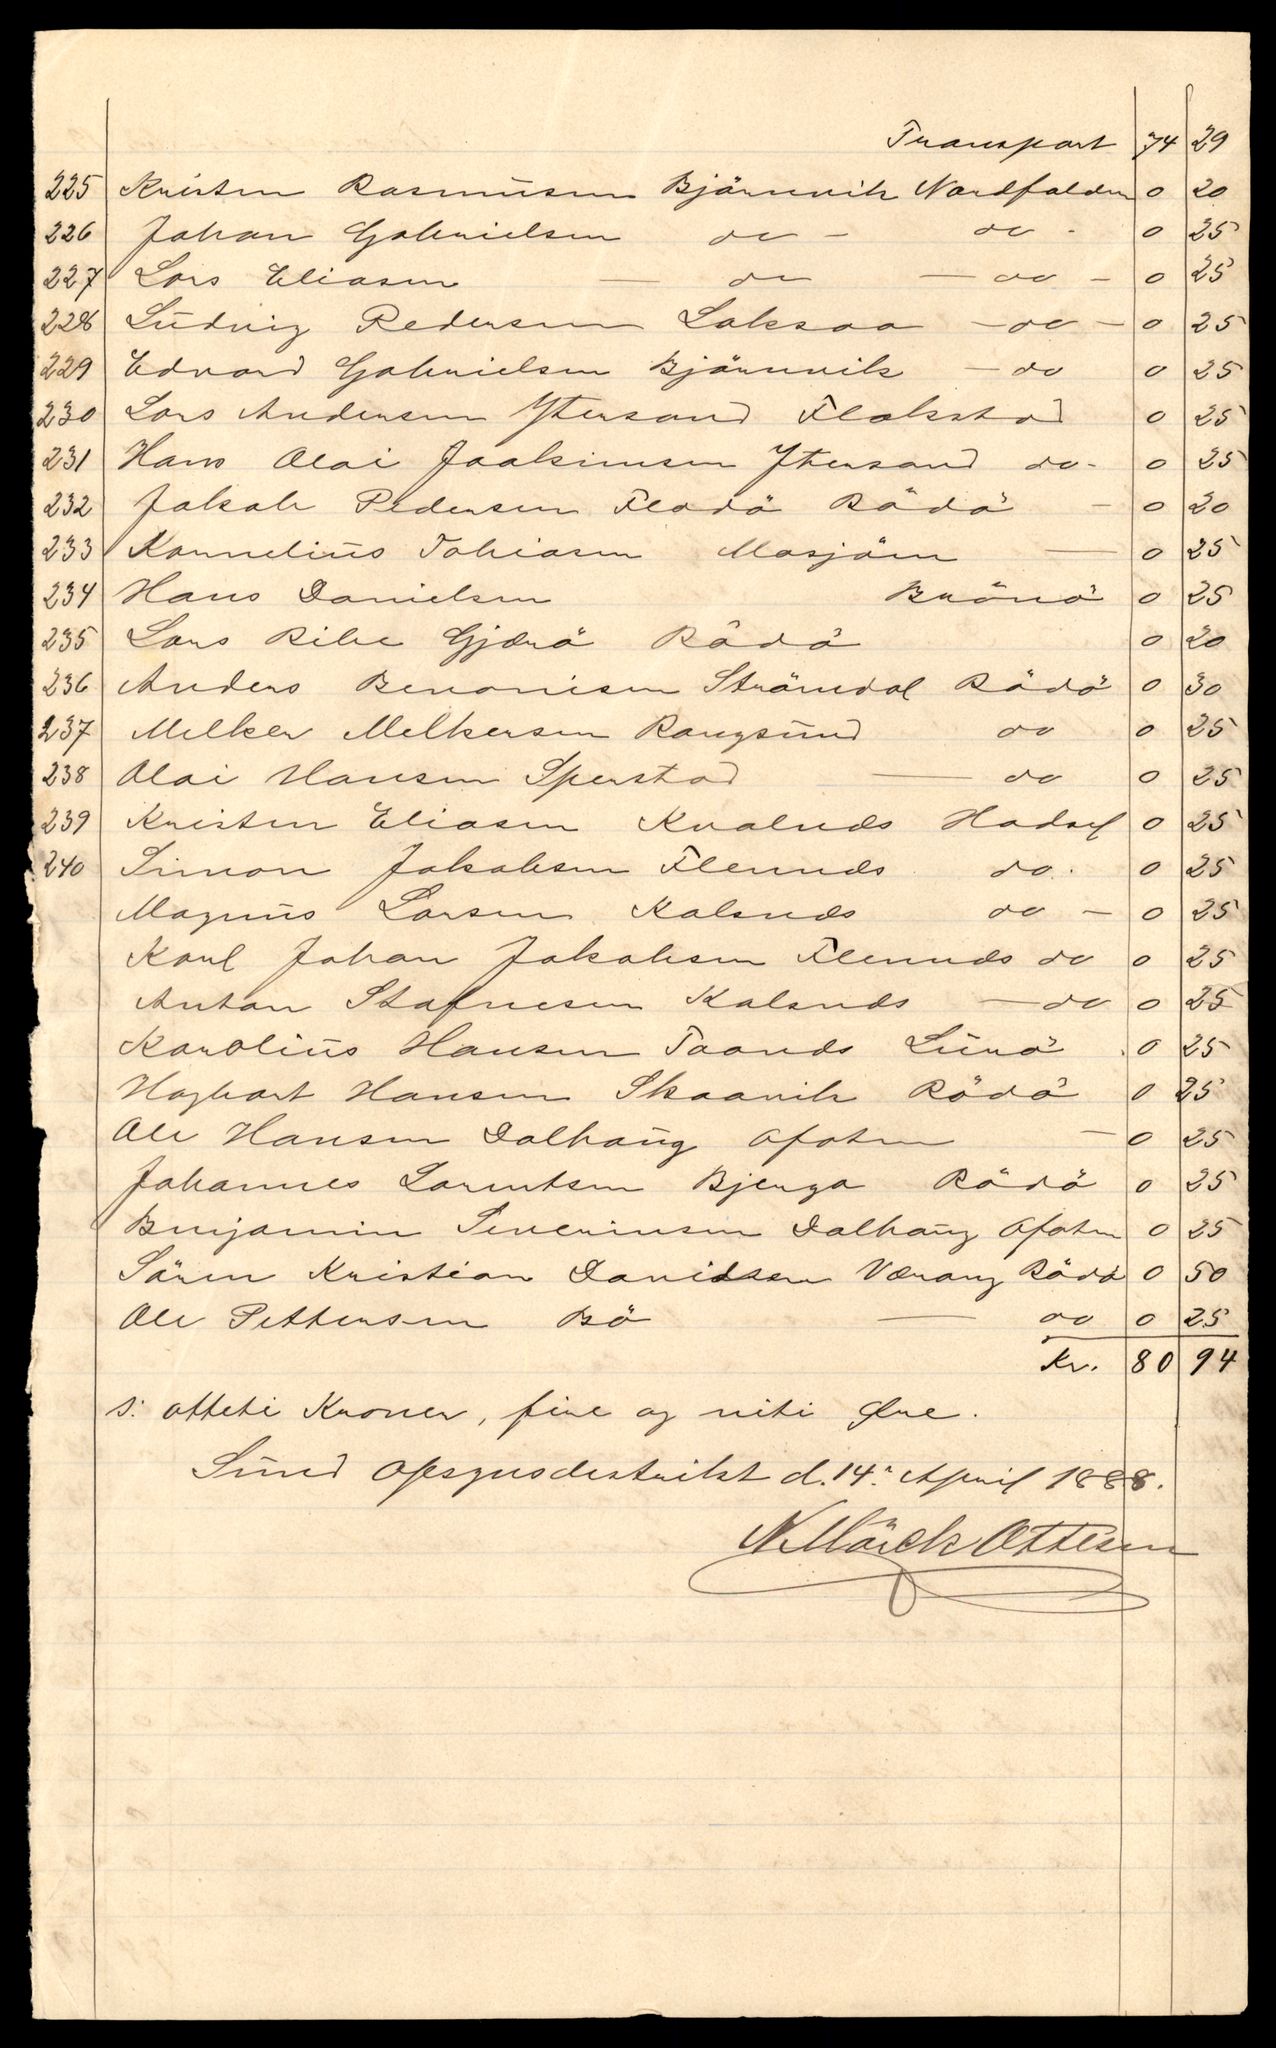 Transport 74 29
225 Kristen Rasmusen Bjärnvik Nordfolden 0 20
226 Johan Gabrielsen do - do - 0 25
227 Lars Eliasen — do — do - 0 25
228 Ludvig Pedersen Laksaa - do - 0 25
229 Edvard Gabrielsen Bjärnvik - do 0 25
230 Lars Andersen Ytersand Flakstad 0 25
231 Hans Olai Joakimsen Ytersand do - 0 25
232 Jakob Pedersen Flodö Rödö - 0 20
233 Kornelius Tobiasen Mosjöen — 0 25
234 Hans Danielsen Brönö 0 25
235 Lars Ribe Gjærö Rödö 0 20
236 Anders Benonisen Strömdal Rödö 0 30
237 Melker Melkersen Rangsund do 0 25
238 Olai Hansen Sperstad — do 0 25
239 Kristen Eliasen Kvalnds Hadsel 0 25
240 Simon Jakobsen Flennds do. 0 25
Magnus Larsen Kalsnds do - 0 25
Karl Johan Jakobsen Flennds do 0 25
Anton Stafnesen Kalsnds — do 0 25
Karolius Hansen Taands Lurö 0 25
Hagbart Hansen Skaavik Rödö 0 25
Ole Hansen Dalhaug Ofoten — 0 25
Johannes Lorentsen Bjerga Rödö 0 25
Benjamin Severinsen Dalhaug Ofoten 0 25
Sören Kristian Davidsen Værang Rödö 0 50
Ole Pettersen Bö — do 0 25
Kr. 80 94
s: otteti Kroner, fire og niti Øre.
Sund Opsynsdistrikt d. 14: April 1888.
N. Mörck Ottesen